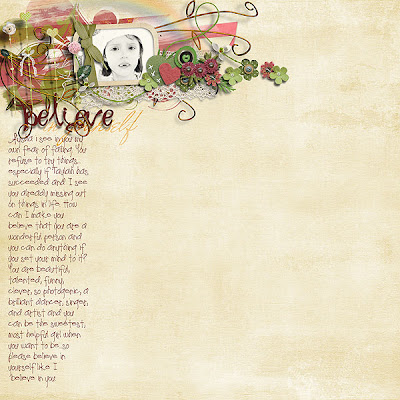 believe
in yourself
I see in you my
own fear of failing. You
refuse to try things
especially if Taylah has
succeeded and I see
you already missing out
on things in life. How
can I make you
believe that you are a
wonderful person and
you can do anything if
you set your mind to it?
You are beautiful,
talented, funny,
clever, so photogenic, a
brilliant dancer, singer,
and artist and you
can be the sweetest,
most helpful girl when
you want to be so
please believe in
yourself like I
believe in you